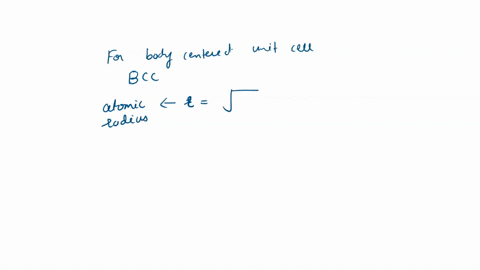 For body centered unit cell
BCC
atomic ← r = √
radius